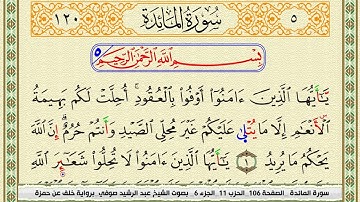 ٥ سُورَةُ المَائِدَةِ ١٢٠
بِسْمِ اللَّهِ الرَّحْمَٰنِ الرَّحِيمِ ٥
يَٰٓأَيُّهَا ٱلَّذِينَ ءَامَنُوٓا۟ أَوْفُوا۟ بِٱلْعُقُودِ ۚ أُحِلَّتْ لَكُم بَهِيمَةُ
ٱلْأَنْعَٰمِ إِلَّا مَا يُتْلَىٰ عَلَيْكُمْ غَيْرَ مُحِلِّى ٱلصَّيْدِ وَأَنتُمْ حُرُمٌ ۗ إِنَّ ٱللَّهَ
يَحْكُمُ مَا يُرِيدُ ١ يَٰٓأَيُّهَا ٱلَّذِينَ ءَامَنُوا۟ لَا تُحِلُّوا۟ شَعَٰٓئِرَ ٱللَّهِ
سورة المائدة الصفحة 106 الحزب 11 الجزء 6 بصوت الشيخ عبد الرشيد صوفي برواية خلف عن حمزة